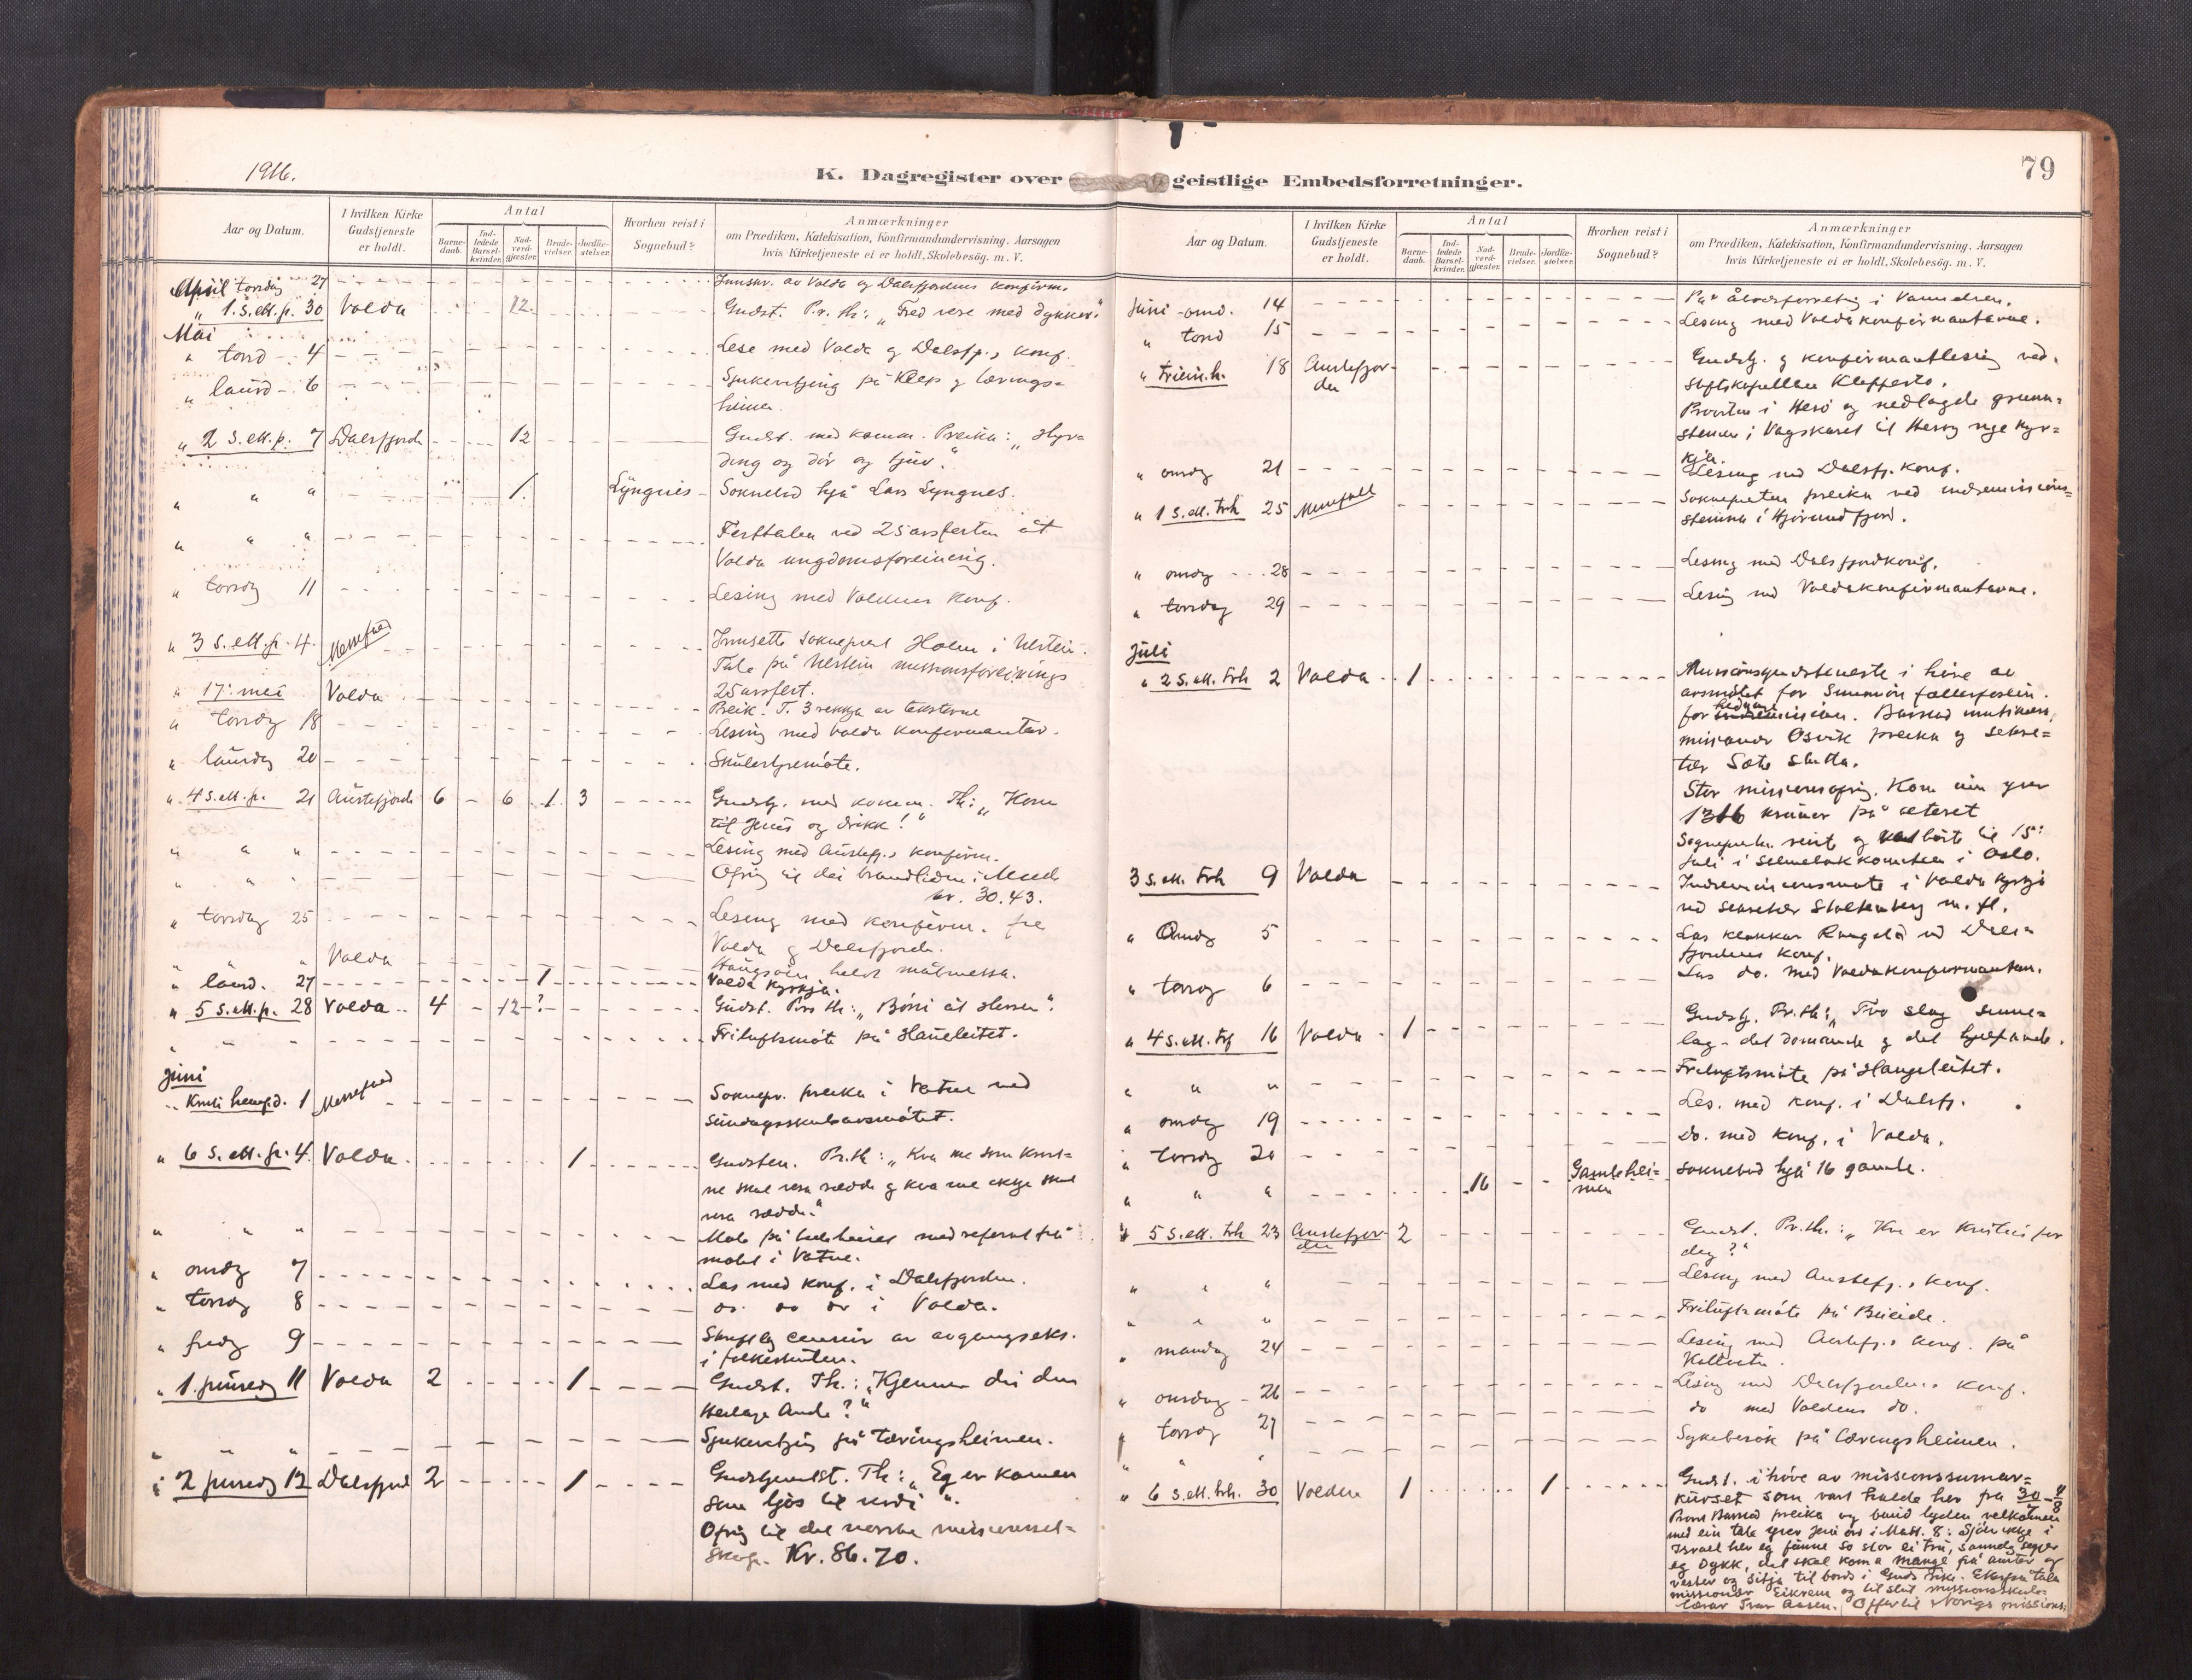 1916.
K. Dagregister over geistlige Embedsforretninger.
79
Aar og Datum.
I hvilken Kirke
Gudstjeneste
er holdt.
Antal
Barne-
daab.
Ind-
ledede
Barsel-
kvinder.
Nad-
verd-
gjæster.
Brude-
vielser.
Jordfæ-
stelser.
Hvorhen reist i
Sognebud?
Anmærkninger
om Prædiken, Katekisation, Konfirmandundervisning. Aarsagen
hvis Kirketjeneste ei er holdt. Skolebesøg. m. V.
April torsdag 27 Innskr. av Volda og Dalsfjordens konfirm.
" 1. s. ett. p. 30 Volda 12 Gudst. Pr. th: "Fred vere med dykker."
Mai
" torsd 4 Lese med Volda og Dalsfj.s konf.
" laurd 6 Sjukevitjing på Kleps og tærings=
heimen.
" 2 s. ett. p. 7 Dalsfjord 12 Gudst. med komm. Preika: "Hyr=
ding og dør og tjuv."
" " " 1. Lyngnes Soknebud hjå Lars Lyngnes.
" " " Festtalen ved 25 arsfesten åt
Volda ungdomsforeining.
" torsdg 11 Lesing med Voldens konf.
" 3 s. ett. p. 4. Messefall Innsette sokneprest Holm i Ulstein.
Tale på Ulstein missionsforeinings
25 arsfest.
" 17. mai Volda Preik. T. 3 rekkja av tekstene
" torsdg 18 Lesing med Volda konfirmantar.
" laurdg 20 Skulestyremøte.
" 4 s. ett. p. 21 Austefjord 6 - 6 1 3 Gudstj. med komm. Th: "Kom
til Jesus og drikk!"
" " " Lesing med Austefj.s konfirm.
" " " Ofring til dei brandlidne i
kr. 30.43.
" torsdag 25 Lesing med konfirm. fra
Volda og Dalsfjord.
" " " Volda held målmessa.
" laurd. 27 1 Volda kyrkja.
" 5 s. ett. p. 28 Volda 4 - 12 - ? Gudst. Pr. th: "Bøni åt Herren".
" " " Friluftsmøte på Haueleitet.
Juni
" Kristi himf.d. 1 Messefall Soknepr. preika i Vatne ved
sundagsskulearsmøtet.
" 6 s. ett. p. 4. Volda 1 Gudsten. Pr.th: "Kva me som krist=
ne skal vera rædde og kva me ikkje skal
vera rædde."
" " " Møte på bedehuset med referat frå
møtet i Vatne.
" onsdg 7 Las med konf. i Dalsfjorden.
" torsdg 8 do. do do i Volda.
" fredg 9 Skriftleg censur av avgangseks.
i folkeskulen.
" 1. pinsedg 11 Volda 2 1 Gudst. Th.: "Kjenner du den
Heilage Ande?"
" " " Sjukevitjing på tæringsheimen.
" 2 pinsedg 12 Dalsfjord 2 1 Gudstjenest. Th: "Eg er komen
som ljos til verdi".
Ofring til det norske missionssel=
skap. Kr. 86.70.
Aar og Datum.
I hvilken Kirke
Gudstjeneste
er holdt.
Antal
Barne-
daab.
Ind-
ledede
Barsel-
kvinder.
Nad-
verd-
gjæster.
Brude-
vielser.
Jordfæ-
stelser.
Hvorhen reist i
Sognebud?
Anmærkninger
om Prædiken, Katekisation, Konfirmandundervisning. Aarsagen
hvis Kirketjeneste ei er holdt. Skolebesøg. m. V.
Juni onsd. 14 På i Vanndalen.
" torsd 15 Lesing med Volda konfirmantarne.
" Triein.h. 18 Austefjor-
den Gudstj. og konfirmantlesing ved
stiftskapellan
Prosten i Herø og nedlagde grunn=
steinen i Vågskaret til Herøy nye kyr=
kja.
" onsdg 21 Lesing med Dalsfj. konf.
" 1 s. ett. trh 25 Messefall Soknepresten preika ved indremissions=
stemna i Hjørundfjord.
" onsdg 28 Lesing med Dalsfjordkonf.
" torsdag 29 Lesing med Voldakonfirmantarne.
Juli
" 2 s. ett. trh 2 Volda 1 Missionsgudsteneste i høve av
arsmøtet for Sunnmøre fellesforein.
for hedningemisionen.
missionær Osvik preika og sekre=
tær Sæte slutta.
Stor missionsofring. Kom inn yver
1346 kroner på
Sokneprten reist og til 15.
juli i salmebokkomiteen i Oslo.
3 s. ett. trh 9 Volda Indremissionsmøte i Volda kyrkje
ved sekretær Stoltenberg m. fl.
" Onsdg 5 Las klokkar med Dals=
fjordens konf.
" torsdg 6 Las do. med Voldakonfirmantan.
" 4 s. ett. trf 16 Volda 1 Gudstj. Pr.th: "Tvo slag sinne=
lag - det domande og det hjelpande.
" " " Friluftsmøte på Haugeleitet.
" onsdg 19 Les. med konf. i Dalsfj.
" torsdg 20 Do. med konf. i Volda.
" " " 16 Gamlehei=
men Soknebud hjå 16 gamle.
" 5 s. ett. trh 23 Austefjor-
den 2 Gudst. Pr.th.: "Kva er Kristus for
deg?"
" " " Lesing med Austefj.s konf.
" " " Friluftsmøte på
" mandag 24 Lesing med Austefj.s konf. på
Kallvatn.
" onsdag 26 Lesing med Dalsfjordens konf.
" torsdg 27 do med Voldens do.
" " " Sykebesøk på tæringsheimen.
" 6 s. ett. trh. 30 Volden 1 1 Gudst. i høve av missionssumar=
kurset som vart halde her fra 30/7 - 4/8
Prost Barstad preika og baud lyden velkomen
med ein tale yver Jesu ord i Matt. 8: Sjølv ikkje i
Israel hev eg funne so stor ei tru, sanneleg segjer
eg dykk, det skal koma mange frå auster og
vester og sitja til bords i Guds rike. Etterpå tala
missionær Eikrem og til slut missionsskule=
lærar Ivar Aasen. Offer til Norges missions: